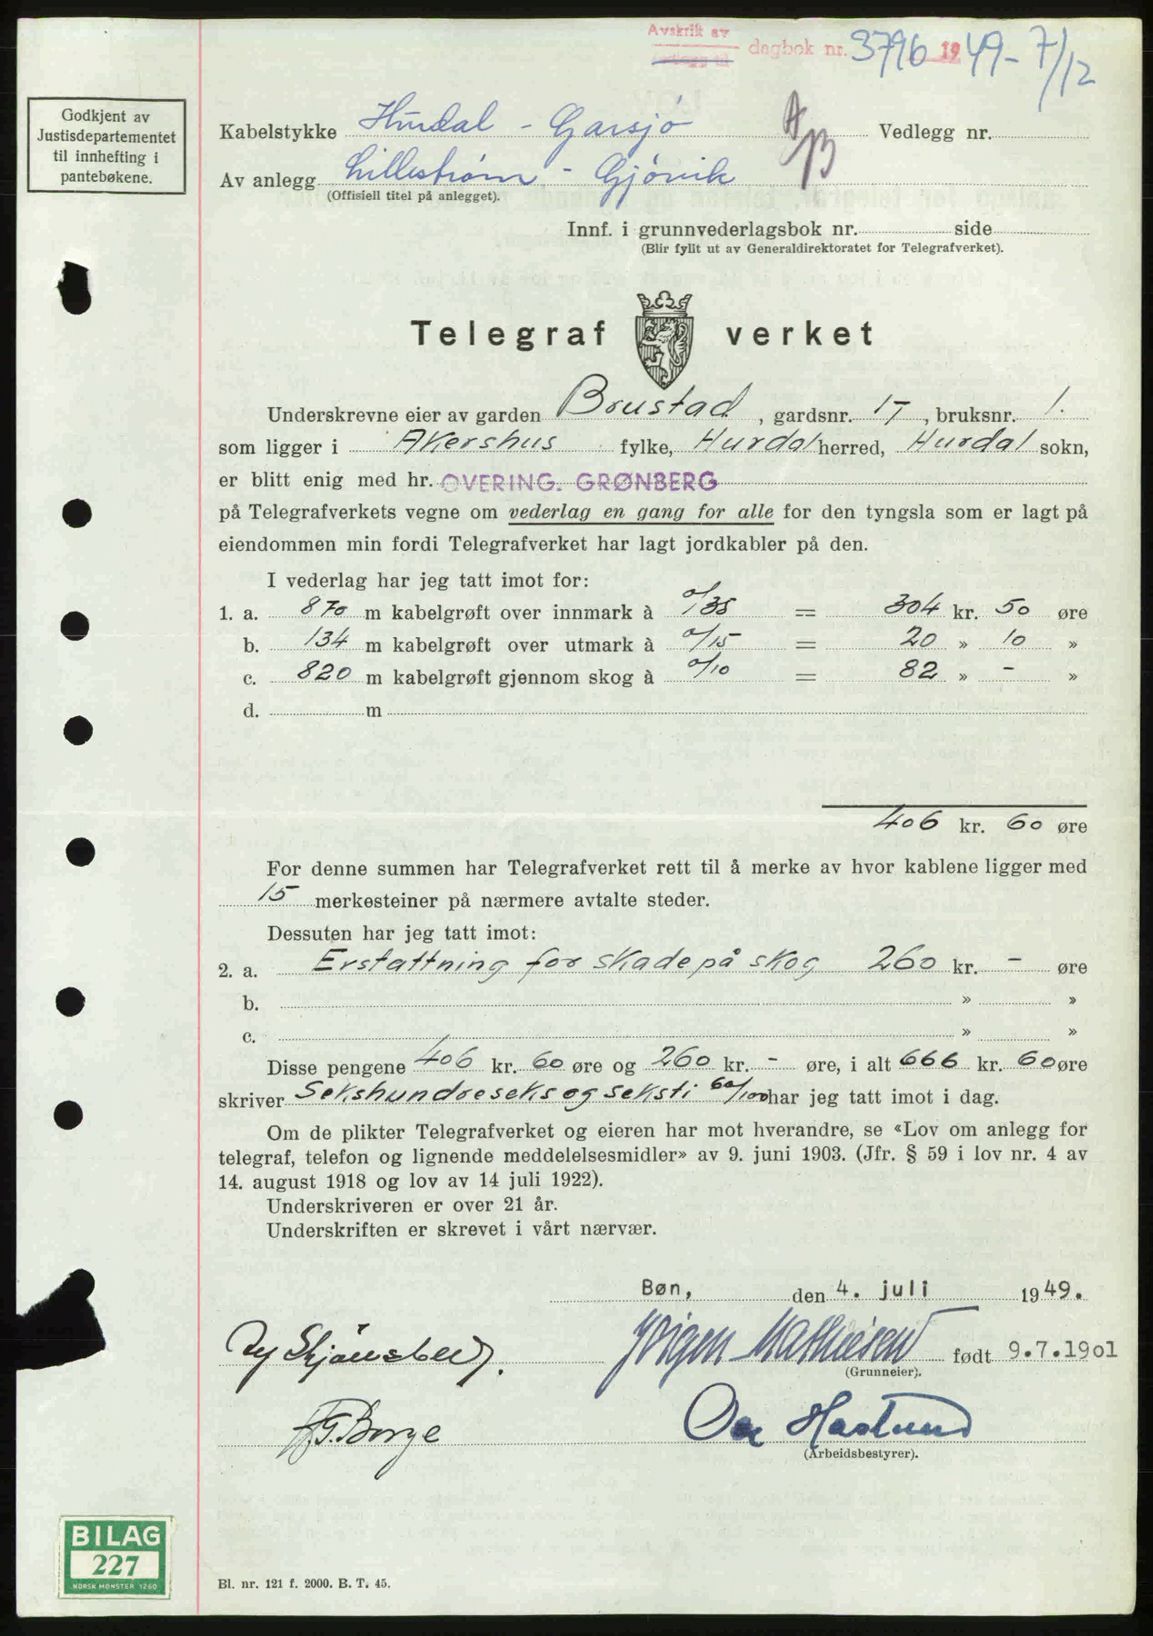 Avskrik av
dagbok nr. 3796 1949 - 7/12
Godkjent av
Justisdepartementet
til innhefting i
pantebøkene.
Kabelstykke Hurdal - Garsjø A/B Vedlegg nr.
Av anlegg Lillestrøm - Gjøvik
(Offisiell titel på anlegget).
Innf. i grunnvederlagsbok nr. side
(Blir fylit ut av Generaldirektoratet for Telegrafverket).
Telegraf verket
Underskrevne eier av garden Brustad, gardsnr. 17, bruksnr. 1.
som ligger i Akershus fylke, Hurdal herred, Hurdal sokn,
er blitt enig med hr. OVERING. GRØNBERG
på Telegrafverkets vegne om vederlag en gang for alle for den tyngsla som er lagt på
eiendommen min fordi Telegrafverket har lagt jordkabler på den.
I vederlag har jeg tatt imot for:
1. a. 870 m kabelgrøft over innmark à 0/35 = 304 kr. 50 øre
b. 134 m kabelgrøft over utmark à 0/15 = 20 » 10 »
c. 820 m kabelgrøft gjennom skog à 0/10 = 82 » - »
d. m
406 kr. 60 øre
For denne summen har Telegrafverket rett til å merke av hvor kablene ligger med
15 merkesteiner på nærmere avtalte steder.
Dessuten har jeg tatt imot:
2. a. Erstattning for skade på skog 260 kr. - øre
b. » »
c. » »
Disse pengene 406 kr. 60 øre og 260 kr. - øre, i alt 666 kr. 60 øre
skriver Sekshundreseks og seksti 60/100 har jeg tatt imot i dag.
Om de plikter Telegrafverket og eieren har mot hverandre, se «Lov om anlegg for
telegraf, telefon og lignende meddelelsesmidler» av 9. juni 1903. (Jfr. § 59 i lov nr. 4 av
14. august 1918 og lov av 14 juli 1922).
Underskriveren er over 21 år.
Underskriften er skrevet i vårt nærvær.
Bøn, den 4. juli 1949.
Jørgen Mathiesen født 9.7.1901
(Grunneier).
Borge Haslund
(Arbeidsbestyrer).
BILAG
227
NORSK MØNSTER 1260
Bl. nr. 121 f. 2000. B. T. 45.